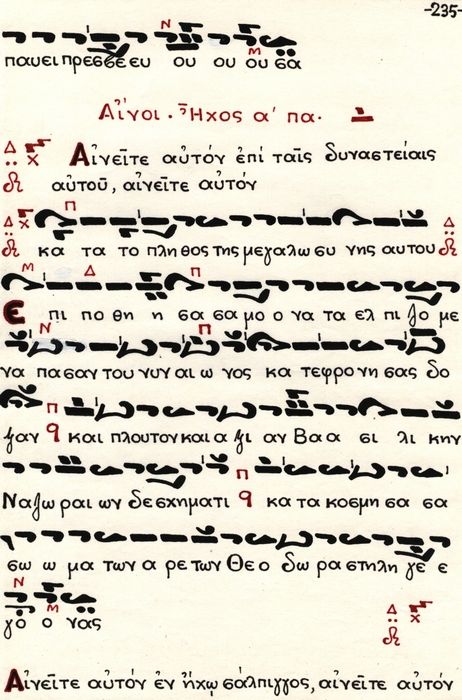 -235-
παυει πρεσβε ευ ου ου ου σα
Αἶνοι. Ἦχος α' πα.
Αἰνεῖτε αὐτόν ἐπί ταῖς δυναστείαις
αὐτοῦ, αἰνεῖτε αὐτόν
κα τα το πληθος της μεγαλωσυ νης αυτου
Ε πι πο θη η σα σα μο ο να τα ελ πι ζο με
να πασαν του νυν αι ω νος κα τεφρο νη σας δο
ξαν και πλουτον και α ξι αν Βα α σι λι κην
Ναζωραι ων δε σχηματι κα τα κοσμη σα σα
σω ω μα των α ρε των Θε ο δω ρα στηλη γε ε
γο ο νας
Αἰνεῖτε αὐτόν ἐν ἤχῳ σάλπιγγος, αἰνεῖτε αὐτόν